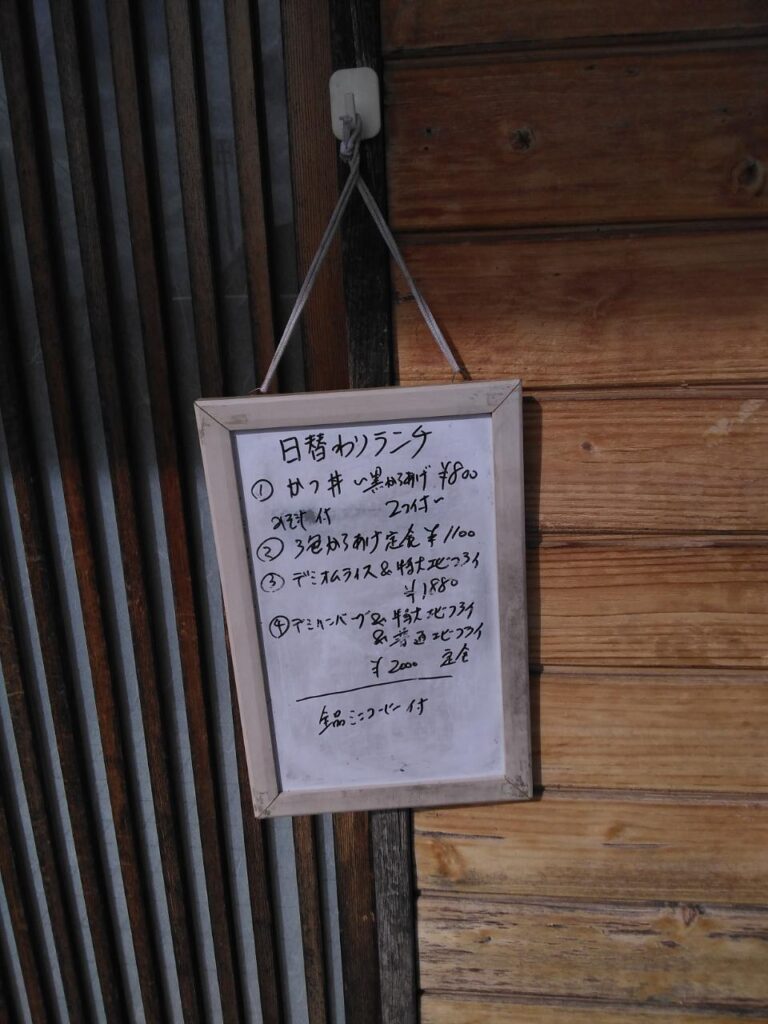 日替わりランチ
① かつ丼 い黒からあげ ¥800
付 2つ付
② 3色からあげ定食 ¥1100
③ デミオムライス&特大エビフライ
¥1880
④ デミハンバーグ&特大エビフライ
&普通エビフライ
¥2000 定食
全品ミニコーヒー付